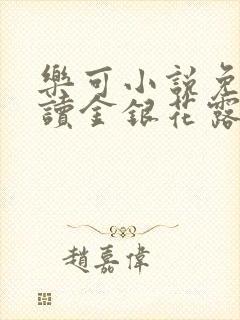 樂可小說免
讀金銀花露
趙嘉偉